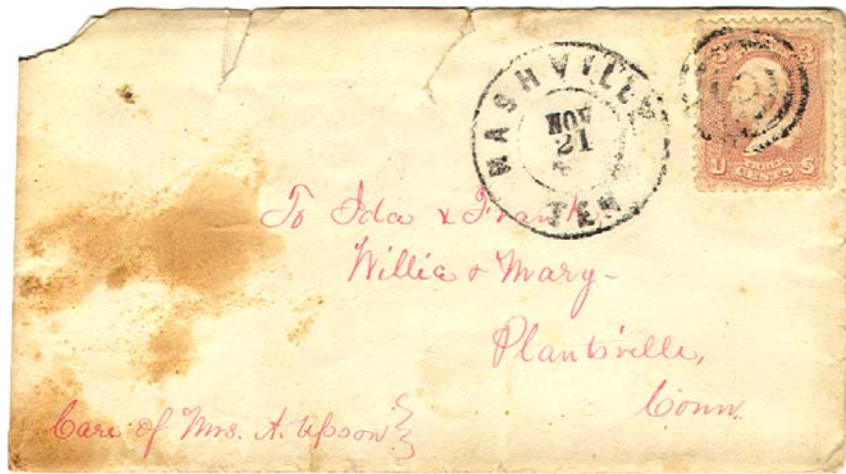 NASHVILLE
NOV
21
TEN
3 3
U THREE S
CENTS
To Ida & Frank,
Willie & Mary-
Plantsville,
Conn.
Care of Mrs. A. Upson